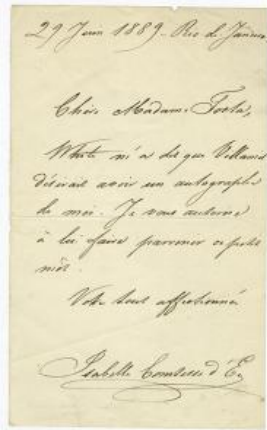 29 Juin 1889. Rio de Janeiro
Chère Madame
White m'a dit que
désirait avoir un autographe
de moi. Je vous autorise
à lui faire parvenir ce petit
mot.
Votre tout affectionnée
Isabelle Comtesse d'Eu